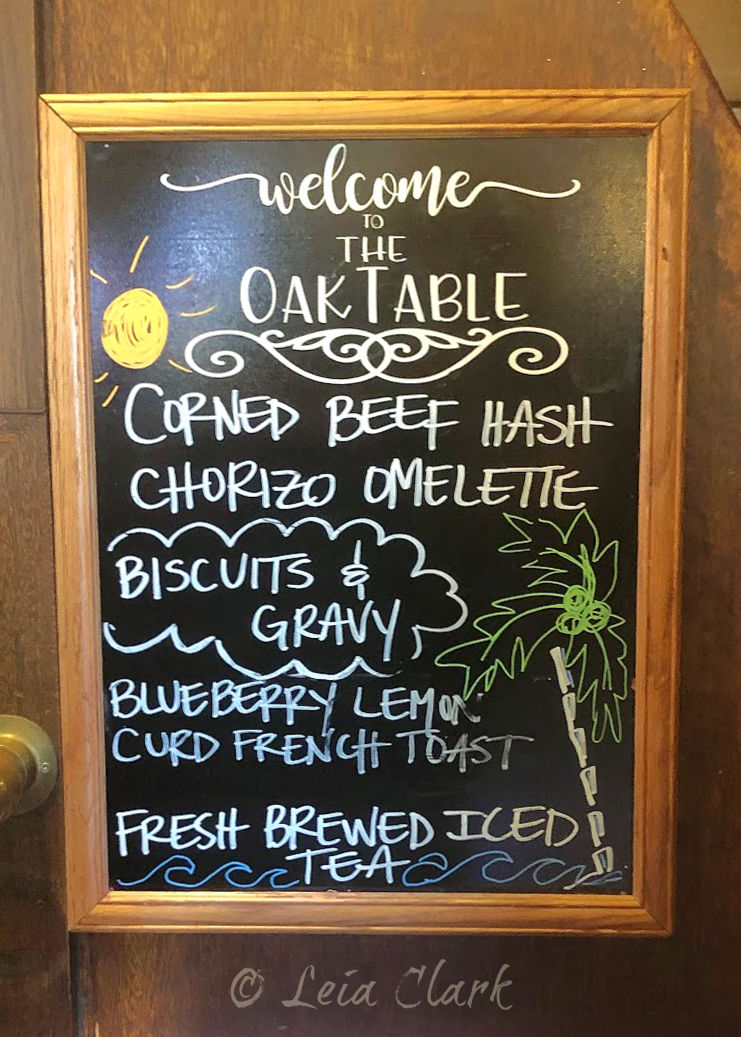 welcome
TO
THE
OAK TABLE
CORNED BEEF HASH
CHORIZO OMELETTE
BISCUITS &
GRAVY
BLUEBERRY LEMON
CURD FRENCH TOAST
FRESH BREWED ICED
TEA
© Leia Clark